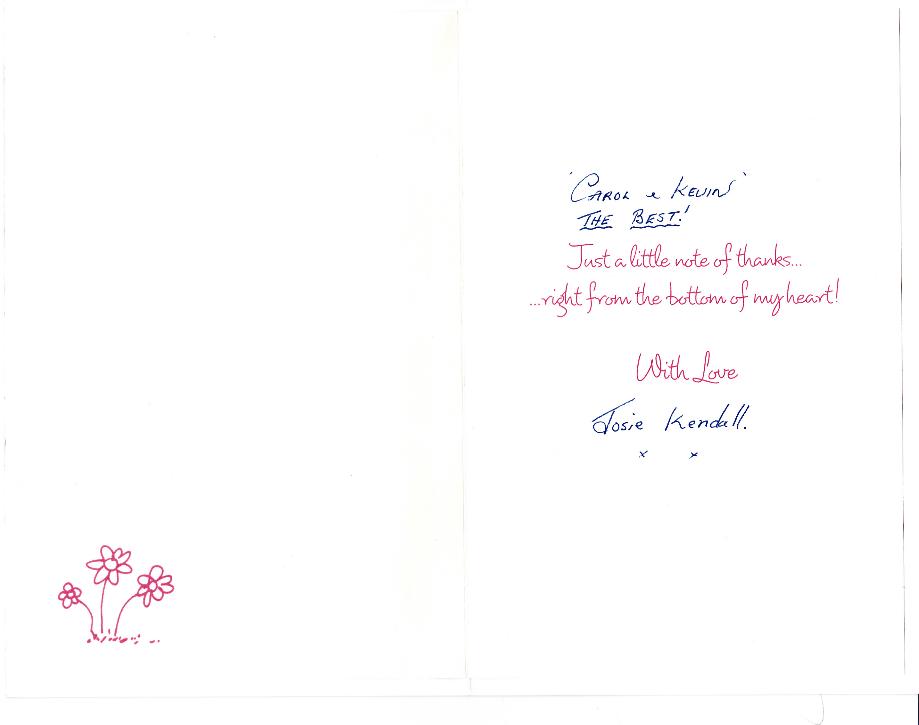 'CAROL & KEVIN'
THE BEST!
Just a little note of thanks...
...right from the bottom of my heart!
With Love
Josie Kendall.
x x